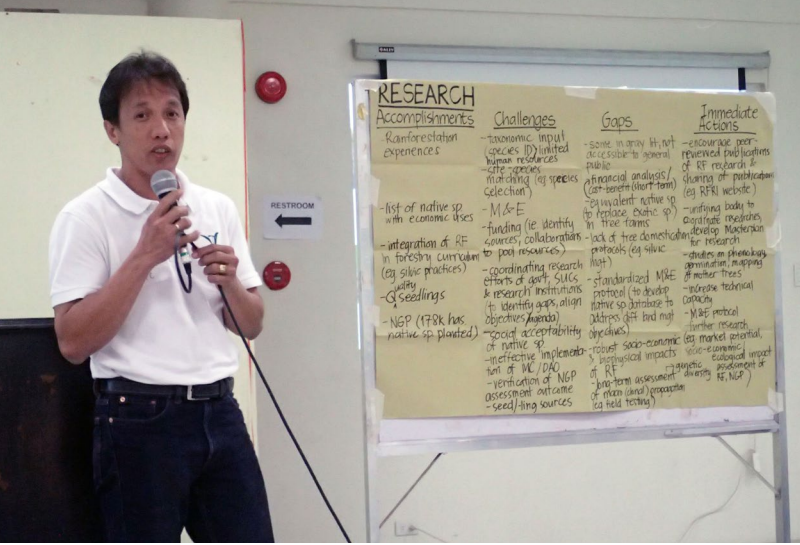 RESTROOM
RESEARCH
Accomplishments
- Rainforestation
experiences
- list of native sp
with economic uses
- integration of RF
in forestry curriculum
(eg silvic practices)
- Quality seedlings
- NGP (178k has
native sp. planted)
Challenges
- taxonomic input
(species ID) limited
human resources
- site-species
matching (eg species
selection)
- M&E
- funding (ie identify
sources, collaborations
to pool resources)
- coordinating research
efforts of govt, SUCs
& research institutions
to identify gaps, align
objectives/agenda)
- social acceptability
of native sp.
- ineffective implementa-
tion of MC/DAO
- verification of NGP
assessment outcome
- seed/-ling sources
Gaps
- some in gray lit, not
accessible to general
public
- financial analysis/
cost-benefit (short-term)
- equivalent native sp
to replace exotic sp in
tree farms
- lack of tree domestication
protocols (eg silvic
mgt)
- standardized M&E
protocol (to develop
native sp database to
address diff and mgt
objectives)
- robust socio-economic
& biophysical impacts
of RF
- long-term assessment
of macro (clonal) propagation
(eg field testing)
Immediate
Actions
- encourage peer-
reviewed publications
of RF research &
sharing of publications
(eg RFRI website)
- unifying body to
coordinate researches,
develop Masterplan
for research
- studies on phenology,
germination, mapping
of mother trees
- increase technical
capacity
- M&E protocol
further research
(eg market potential,
socio-economic,
ecological impact
assessment of
RF, NGP)
genetic
diversity